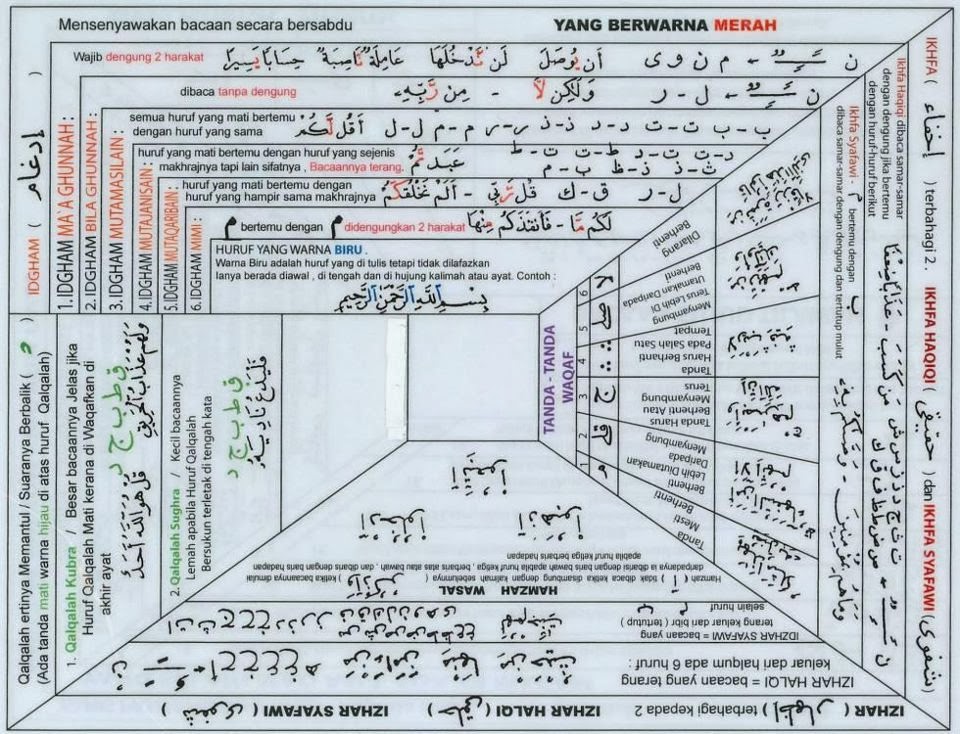 Mensenyawakan bacaan secara bersabdu
YANG BERWARNA MERAH
IDGHAM ( إدغام )
1. IDGHAM MA`A GHUNNAH :
Wajib dengung 2 harakat
م ن و ى
أَن يُوصَلَ
لَن نَّدْخُلَهَا
عَامِلَةٌ نَّاصِبَةٌ
حِسَابًا يَسِيرًا
2. IDGHAM BILA GHUNNAH :
dibaca tanpa dengung
ل - ر
وَلَٰكِن لَّا
مِن رَّبِّهِ
3. IDGHAM MUTAMASILAIN :
semua huruf yang mati bertemu
dengan huruf yang sama
ب - ب ت - ت د - د ذ - ذ ر - ر م - م ل - ل
أَقُل لَّكُمْ
4. IDGHAM MUTAJANISAIN :
huruf yang mati bertemu dengan huruf yang sejenis
makhrajnya tapi lain sifatnya , Bacaannya terang.
عَبَدتُّمْ
د - ت ت - د ط - ت ت - ط
ث - ذ ذ - ظ ب - م
5. IDGHAM MUTAQARIBAIN :
huruf yang mati bertemu dengan
huruf yang hampir sama makhrajnya
ل - ر ق - ك
قُل رَّبِّي - أَلَمْ نَخْلُقكُّم
6. IDGHAM MIMI :
م bertemu dengan م didengungkan 2 harakat
لَكُم مَّا - فَأَنتَذَكُم مِّنْهَا
HURUF YANG WARNA BIRU .
Warna Biru adalah huruf yang di tulis tetapi tidak dilafazkan
Ianya berada diawal , di tengah dan di hujung kalimah atau ayat. Contoh :
بِسْمِ اللَّهِ الرَّحْمَٰنِ الرَّحِيمِ
IKHFA ( إخفاء ) terbahagi 2 . IKHFA HAQIQI ( حقيقي ) dan IKHFA SYAFAWI ( شفوي )
Ikhfa Haqiqi dibaca samar-samar
dengan dengung jika bertemu
dengan huruf-huruf berikut
ن
ت ث ج د ذ ز س ش
ص ض ط ظ ف ق ك
Ikhfa Syafawi - م bertemu dengan ب
dibaca samar-samar dengan dengung dan tertutup mulut
TANDA - TANDA
WAQAF
1
Tanda
Mesti
Berhenti
2
Berhenti
Lebih Diutamakan
Daripada
Menyambung
3
Tanda Harus
Berhenti Atau
Menyambung
Terus
4
Tanda
Harus Berhanti
Pada Salah Satu
Tempat
5
Menyambung
Terus Lebih Di
Utamakan Daripada
Berhenti
6
Dilarang
Berhenti
Qalqalah ertinya Memantul / Suaranya Berbalik ( د )
(Ada tanda mati warna hijau di atas huruf Qalqalah)
1. Qalqalah Kubra / Besar bacaannya Jelas jika
Huruf Qalqalah Mati kerana di Waqafkan di
akhir ayat
ق ط ب ج د
وَلَهُمْ عَذَابُ الْحَرِيقِ
قُلْ هُوَ اللَّهُ أَحَدٌ
2. Qalqalah Sughra / Kecil bacaannya
Lemah apabila Huruf Qalqalah
Bersukun terletak di tengah kata
ق ط ب ج د
فَلْيَدْعُ نَادِيَهُ
HAMZAH WASAL
Hamzah ( ٱ ) tidak dibaca ketika disambung dengan kalimah sebelumnya ( ) ketika bacaannya dimulai
daripadanya ia berbaris dengan baris bawah apabila huruf ketiga , berbaris atas atau bawah , dan dibaris dengan baris hadapan
apabila huruf ketiga berbaris hadapan
IDZHAR SYAFAWI = bacaan yang
terang keluar dari bibir ( tertutup )
selain huruf م ب
IZHAR HALQI = bacaan yang terang
keluar dari halqum ada 6 huruf :
IZHAR ( إظهار ) terbahagi kepada 2
IZHAR HALQI ( حلقي )
IZHAR SYAFAWI ( شفوي )